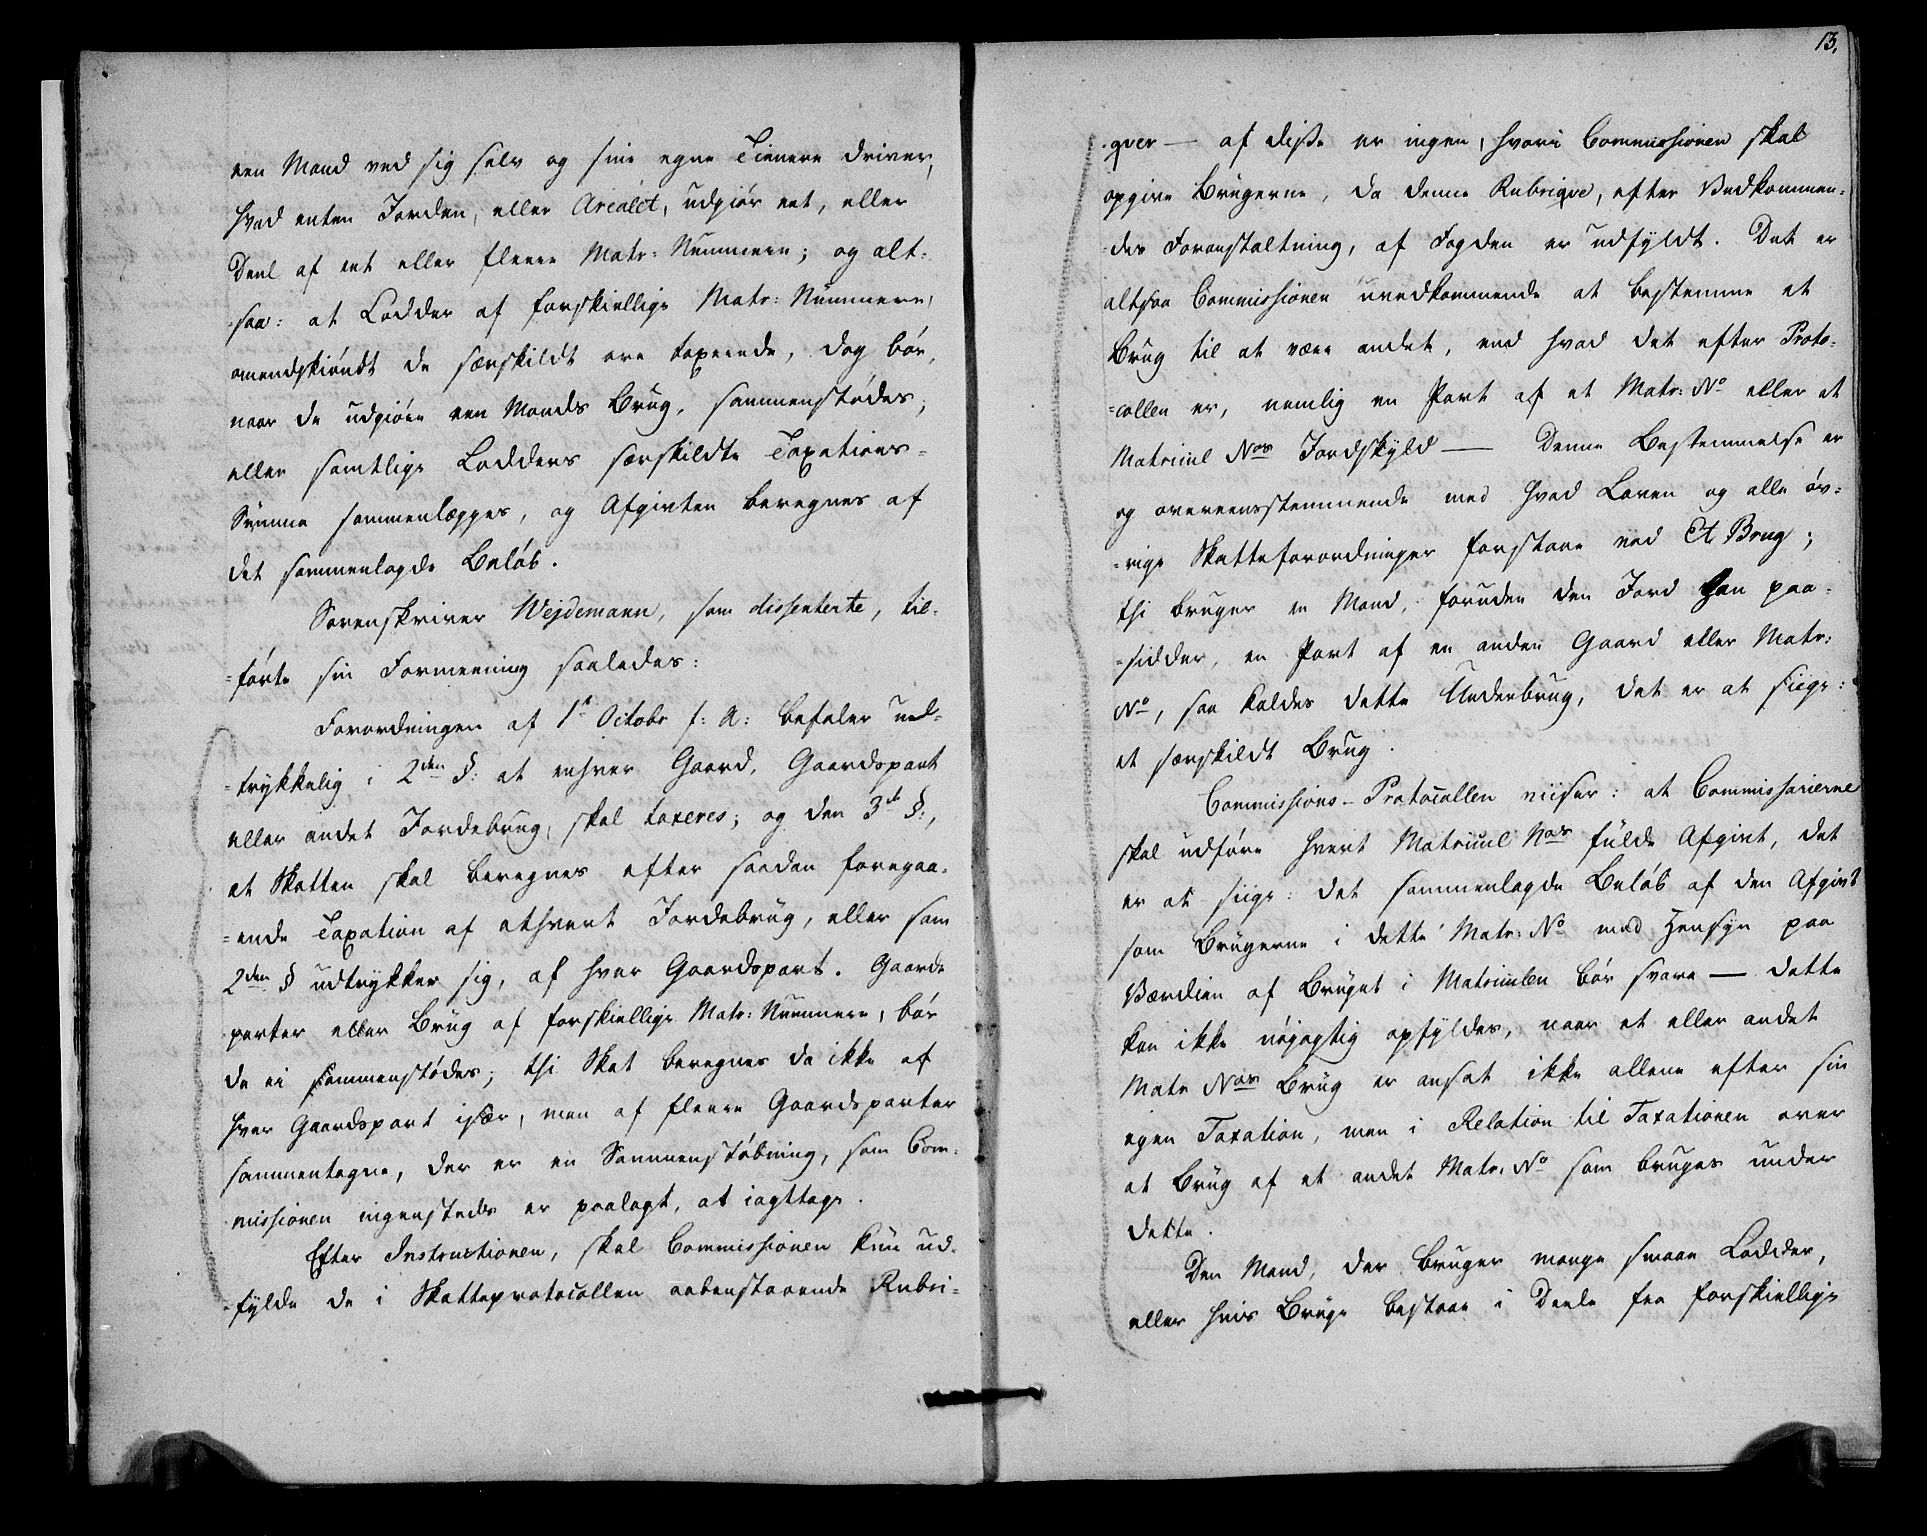 een Mand ved sig selv og sine egne Tienere driver,
hvad enten Jorden, eller Arealet, udgiør eet, eller
Deel af eet eller fleere Matr: Nummere; og alt-
-saa: at Lodder af forskiellige Matr: Nummere,
omendskiøndt de særskildt ere taxerede, dog bør,
naar de udgiøre een Mands Brug, sammenstødes,
eller samtlige Lodders særskildte Taxations-
Summa sammenlægges, og Afgivten beregnes af
det sammenlagde Beløb.
Sorenskriver Wejdemann, som dissenterte, til-
-førte sin Formeening saaledes:
Forordningen af 1te Octobr f: A: befaler ud-
-trykkelig i 2den §: at enhver Gaard, Gaardspart
eller andet Jordebrug, skal taxeres; og den 3de §:,
at Skatten skal beregnes efter saadan foregaa-
-ende Taxation af ethvert Jordebrug, eller som
2den § udtrykker sig, af hver Gaardspart. Gaards
parter eller Brug af forskiellige Matr: Nummere, bør
da ei sammenstødes; thi Skat beregnes da ikke af
hver Gaardspart især, men af fleere Gaardsparter
sammentagne, der er en Sammenstøbning, som Com-
missionen ingenstedes er paalagt, at iagttage.
Efter Instructionen, skal Commissionen kun ud-
-fylde de i Skatteprotocollen aabenstaaende Rubri-
13.
qver — af disse er ingen, hvori Commissionen skal
opgive Brugerne, da denne Rubriqve, efter Vedkommen-
-des Foranstaltning, af Fogden er udfyldt. Det er
altsaa Commissionen uvedkommende at bestemme et
Brug til at være andet, end hvad det efter Proto-
-collen er, nemlig en Part af et Matr: No eller et
Matricul Nos Jordskyld — Denne Bestemmelse er
og overeensstemmende med hvad Loven og alle øv-
-rige Skatteforordninger forstaae ved Et Brug;
thi bruger en Mand, foruden den Jord han paa-
-sidder, en Part af en anden Gaard eller Matr:
No, saa kaldes dette Underbrug, det er at siige:
et særskildt Brug.
Commissions-Protocollen viiser: at Commissairerne
skal udføre hvert Matricul Nos fulde Afgivt, det
er at siige: det sammenlagde Beløb af den Afgivt
som Brugerne i dette Matr: No med Hensyn paa
Værdien af Bruget i Matriculen bør svare — dette
kan ikke nøjagtig opfyldes, naar et eller andet
Matr Nos Brug er ansat ikke allene efter sin
egen Taxation, men i Relation til Taxationen over
et Brug af et andet Matr: No som bruges under
dette.
Den Mand, der bruger mange smaae Lodder,
eller hvis Brug bestaae i Deele fra forskiellige